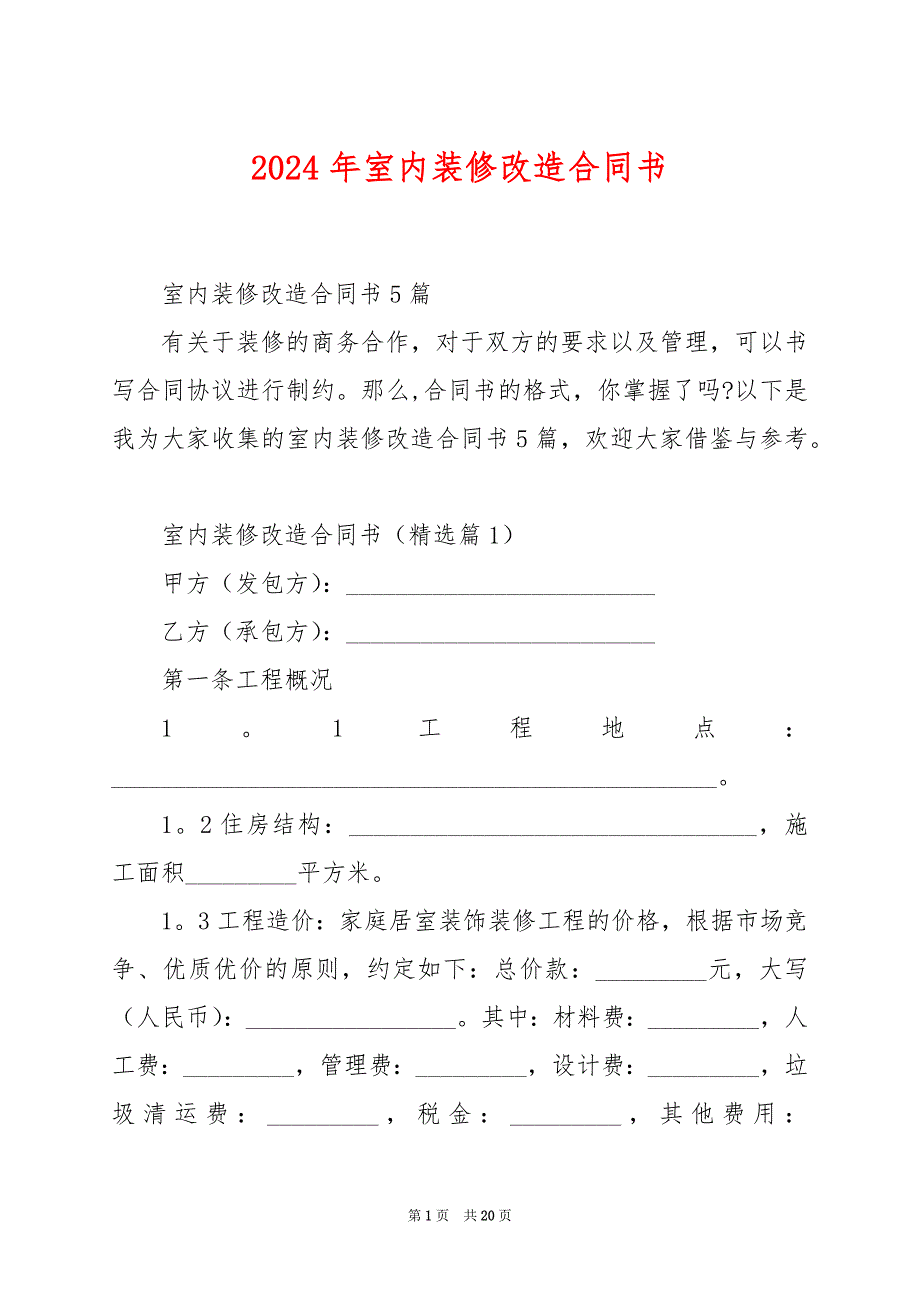 2024年室内装修改造合同书
室内装修改造合同书5篇
有关于装修的商务合作，对于双方的要求以及管理，可以书
写合同协议进行制约。那么,合同书的格式，你掌握了吗?以下是
我为大家收集的室内装修改造合同书5篇，欢迎大家借鉴与参考。
室内装修改造合同书（精选篇1）
甲方（发包方）：_________________________
乙方（承包方）：_________________________
第一条工程概况
1。1工程地点：
_________________________________________________。
1。2住房结构：_________________________________，施
工面积_________平方米。
1。3工程造价：家庭居室装饰装修工程的价格，根据市场竞
争、优质优价的原则，约定如下：总价款：_________元，大写
（人民币）：_________________。其中：材料费：_________，人
工费：_________，管理费：_________，设计费：_________，垃
圾清运费：_________，税金：_________，其他费用：
第1页 共20页